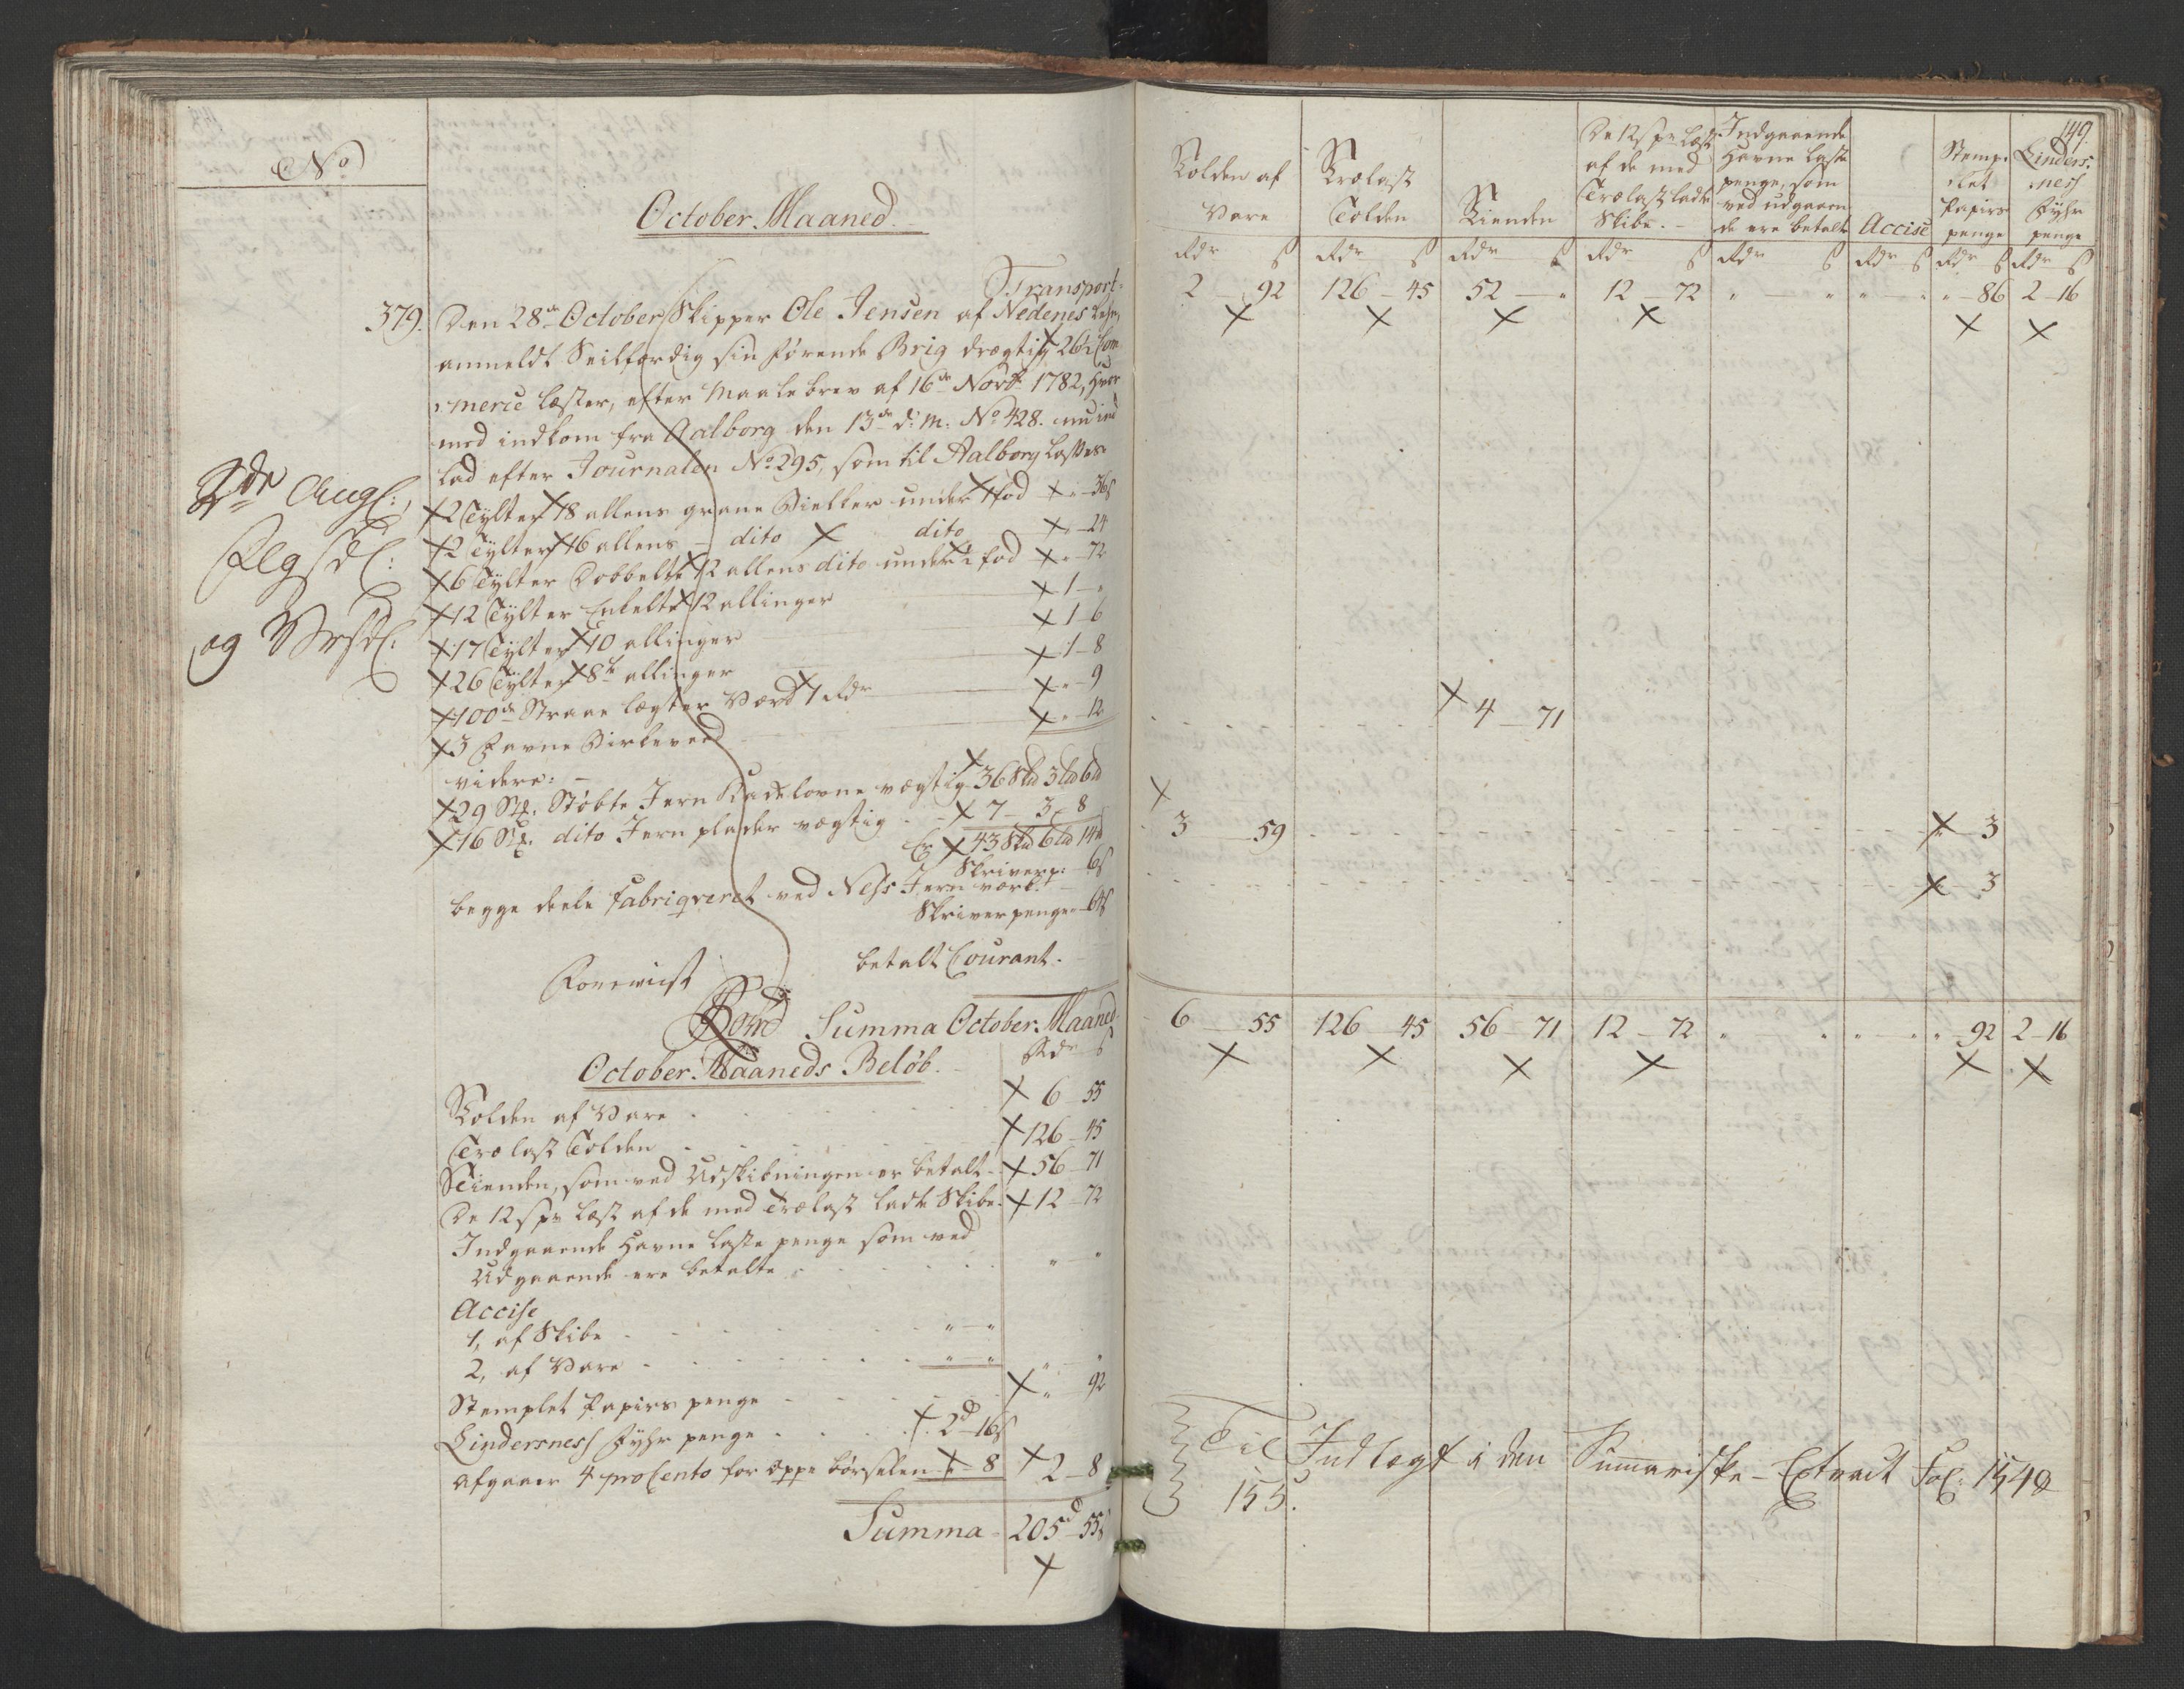 No
October Maaned.
Transport
379. Den 28de October Skipper Ole Jensen af Nedenes Lehn,
anmeldt Seilfærdig sin førende Brig drægtig 26½ Com-
merce Læster, efter Maalebrev af 16de Novbr 1782, hvor
med indkom fra Aalborg den 13de d: M: No 428. nu ind
lad efter Journalen No 295, som til Aalborg Lostes
2 Tylter 18 allens grane Bielker under 1 fod " - 36 s
2 Tylter 16 allens - dito dito " - 24
6 Tylter Dobbelte 12 allens dito under ½ fod " - 72
12 Tylter Enkelte 12 allinger 1 - "
17 Tylter 10 allinger 1 - 6
26 Tylter 8te allinger 1 - 8
100de Straae lægter Værd 1 Rdr " - 9
3 Favne Birkeved " - 12
videre:
29 Stk. Støbte Jern Kackelovne vægtig 36 Skd 3 Ld 6 d
16 Stk. dito Jern plader vægtig 7 - 3 - 8
Er 43 Skd 6 Ld 14 d
Skriverp: 6 s
begge deele Fabriqveret ved Næss Jernværk.
Skriverpenge 64 s
betalt Courant.
Fonewist
Summa October Maaned
October Maaneds Beløb.
Rdr s
Tolden af Vare 6 - 55
Trælast Tolden 126 - 45
Tienden, som ved Udskibningen er betalt 56 - 71
De 12 s pr Læst af de med Trælast ladte Skibe 12 - 72
Indgaaende Havne Laste penge som ved
Udgaaende ere betalte " - "
Accise
1, af Skibe " - "
2, af Vare " - " " - "
Stemplet Papirs penge " 92
Lindersness Fyhr penge 2d 16 s
afgaaer 4 pro Cento for oppe børselen " - 8 2 - 8
Summa 205d 55 s
og
149.
Tolden af Vare
Trælast Tolden
Tienden
De 12 s pr Læst af de med Trælast ladte Skibe.
Indgaaende Havne Laste penge, som ved udgaaende ere betalte
Accise
Stemplet Papirs penge
Lindersness Fyhr penge
Rdr s Rdr s Rdr s Rdr s Rdr s Rdr s Rdr s Rdr s
2 - 92 126 - 45 52 - " 12 - 72 " - " " - " " - 86 2 - 16
4 - 71
3 - 59 " - 3
" - 3
6 - 55 126 - 45 56 - 71 12 - 72 " " " " " 92 2 - 16
Til Indlægt i den Summariske Extract Fol: 154 &
155.